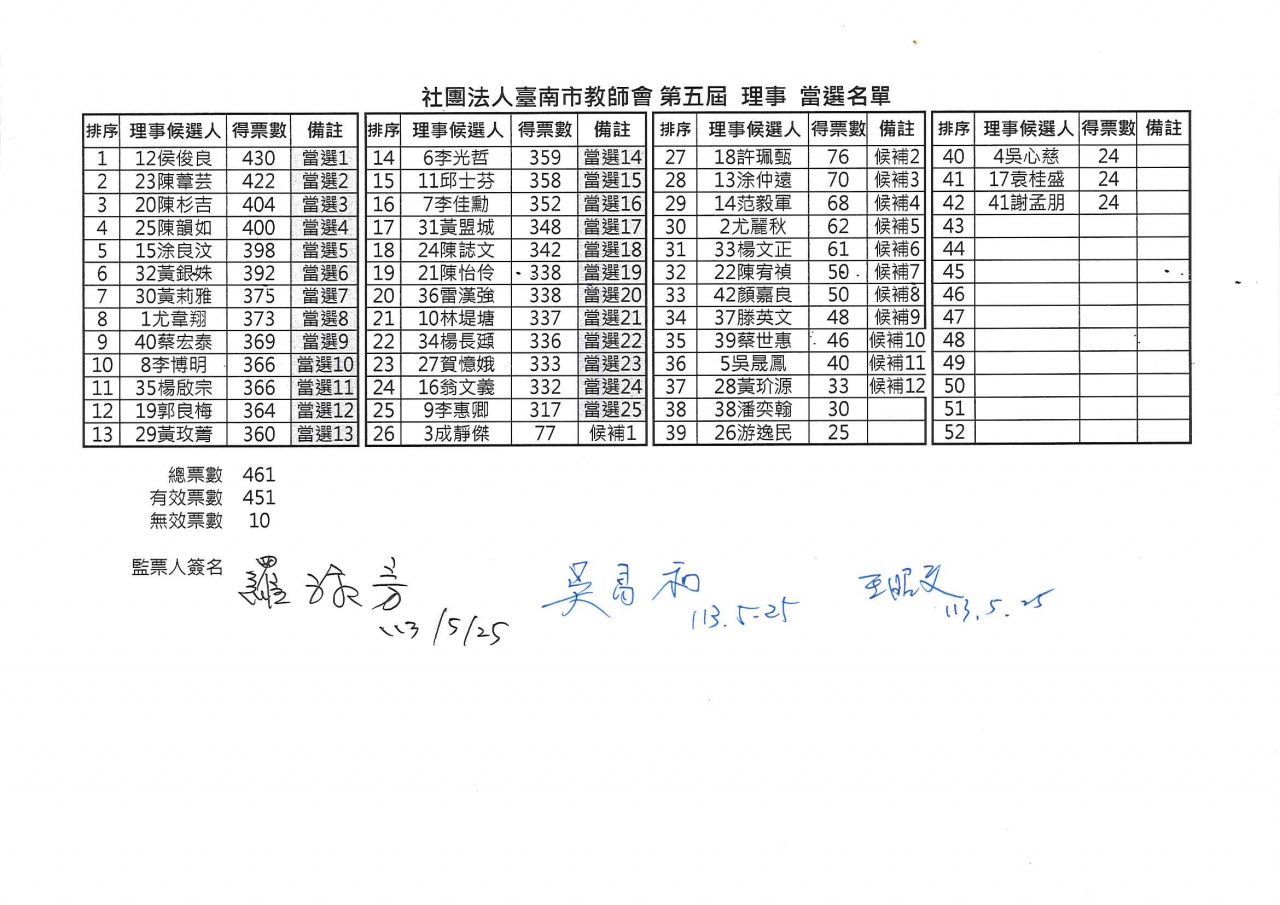 社團法人臺南市教師會 第五屆 理事 當選名單
排序 理事候選人 得票數 備註
1 12侯俊良 430 當選1
2 23陳葦芸 422 當選2
3 20陳杉吉 404 當選3
4 25陳韻如 400 當選4
5 15涂良汶 398 當選5
6 32黃銀姝 392 當選6
7 30黃莉雅 375 當選7
8 1尤韋翔 373 當選8
9 40蔡宏泰 369 當選9
10 8李博明 366 當選10
11 35楊啟宗 366 當選11
12 19郭良梅 364 當選12
13 29黃玫菁 360 當選13
排序 理事候選人 得票數 備註
14 6李光哲 359 當選14
15 11邱士芬 358 當選15
16 7李佳勳 352 當選16
17 31黃盟城 348 當選17
18 24陳誌文 342 當選18
19 21陳怡伶 338 當選19
20 36雷漢強 338 當選20
21 10林堤塘 337 當選21
22 34楊長頲 336 當選22
23 27賀憶娥 333 當選23
24 16翁文義 332 當選24
25 9李惠卿 317 當選25
26 3成靜傑 77 候補1
排序 理事候選人 得票數 備註
27 18許珮甄 76 候補2
28 13涂仲遠 70 候補3
29 14范毅軍 68 候補4
30 2尤麗秋 62 候補5
31 33楊文正 61 候補6
32 22陳宥禎 50 候補7
33 42顏嘉良 50 候補8
34 37滕英文 48 候補9
35 39蔡世惠 46 候補10
36 5吳晟鳳 40 候補11
37 28黃玠源 33 候補12
38 38潘奕翰 30
39 26游逸民 25
排序 理事候選人 得票數 備註
40 4吳心慈 24
41 17袁桂盛 24
42 41謝孟朋 24
43
44
45
46
47
48
49
50
51
52
總票數 461
有效票數 451
無效票數 10
監票人簽名 羅淑芳 吳昌和 王昭文
113/5/25 113.5.25 113.5.25